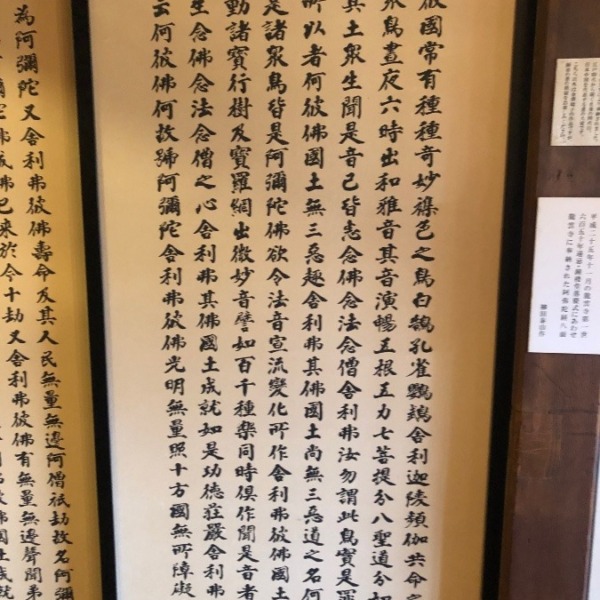 平成二十五年十一月の龍雲寺第一世
龍雲寺に奉納された阿弥陀経八面
彼國常有種種奇妙襍色之鳥白鵠孔雀鸚鵡舍利迦陵頻伽共命
衆鳥晝夜六時出和雅音其音演暢五根五力七菩提分八聖道分如
其土衆生聞是音已皆悉念佛念法念僧舍利弗汝勿謂此鳥實是罪
所以者何彼佛國土無三惡趣舍利弗其佛國土尚無三惡道之名何
是諸衆鳥皆是阿彌陀佛欲令法音宣流變化所作舍利弗彼佛國土
動諸寶行樹及寶羅網出微妙音譬如百千種樂同時俱作聞是音者
生念佛念法念僧之心舍利弗其佛國土成就如是功德莊嚴舍利弗
云何彼佛何故號阿彌陀舍利弗彼佛光明無量照十方國無所障礙
為阿彌陀又舍利弗彼佛壽命及其人民無量無邊阿僧祇劫故名阿彌
彌陀佛成佛已來於今十劫又舍利弗彼佛有無量無邊聲聞弟